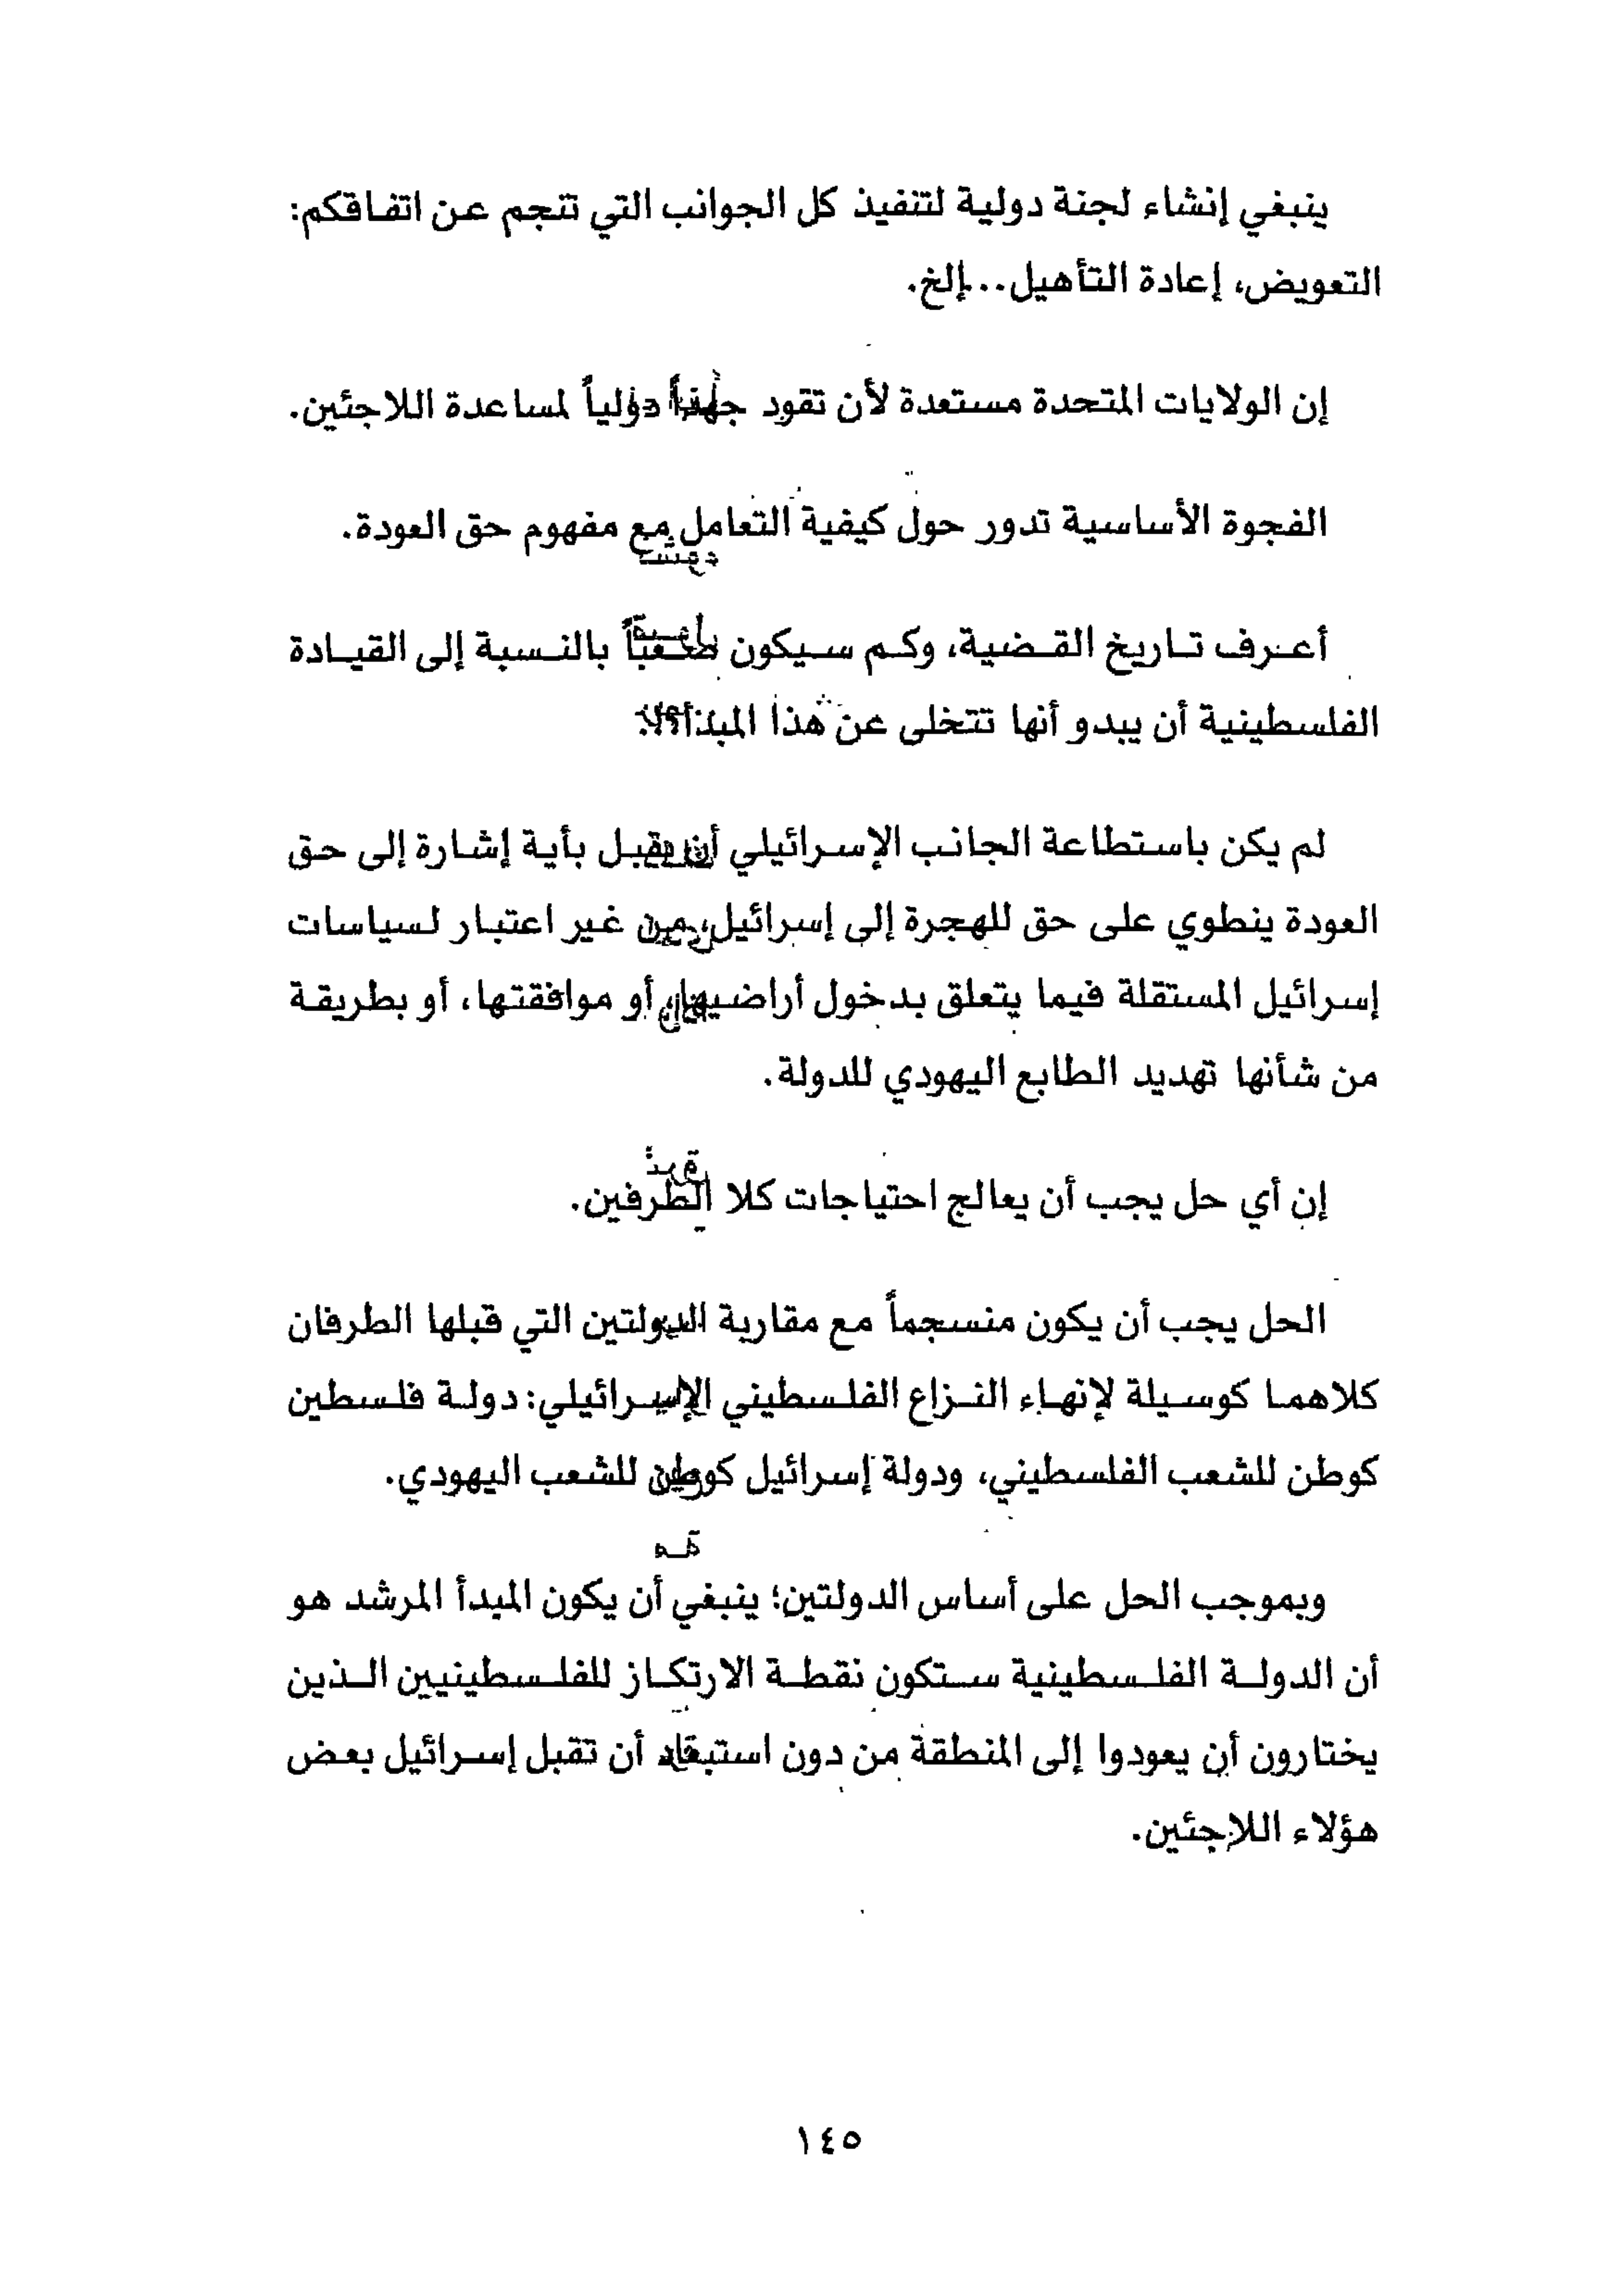 ينبغي إنشاء لجنة دولية لتنفيذ كل الجوانب التي تنجم عن اتفاقكم:
التعويض، إعادة التأهيل...إلخ.
إن الولايات المتحدة مستعدة لأن تقود جهداً دولياً لمساعدة اللاجئين.
الفجوة الأساسية تدور حول كيفية التعامل مع مفهوم حق العودة.
أعرف تاريخ القضية، وكم سيكون صعباً بالنسبة إلى القيادة
الفلسطينية أن يبدو أنها تتخلى عن هذا المبدأ
لم يكن باستطاعة الجانب الإسرائيلي أن يقبل بأية إشارة إلى حق
العودة ينطوي على حق للهجرة إلى إسرائيل، من غير اعتبار لسياسات
إسرائيل المستقلة فيما يتعلق بدخول أراضيها، أو موافقتها، أو بطريقة
من شأنها تهديد الطابع اليهودي للدولة.
إن أي حل يجب أن يعالج احتياجات كلا الطرفين.
الحل يجب أن يكون منسجماً مع مقاربة الدولتين التي قبلها الطرفان
كلاهما كوسيلة لإنهاء النزاع الفلسطيني الإسرائيلي: دولة فلسطين
كوطن للشعب الفلسطيني، ودولة إسرائيل كوطن للشعب اليهودي.
وبموجب الحل على أساس الدولتين؛ ينبغي أن يكون المبدأ المرشد هو
أن الدولة الفلسطينية ستكون نقطة الارتكاز للفلسطينيين الذين
يختارون أن يعودوا إلى المنطقة من دون استبعاد أن تقبل إسرائيل بعض
هؤلاء اللاجئين.
١٤٥